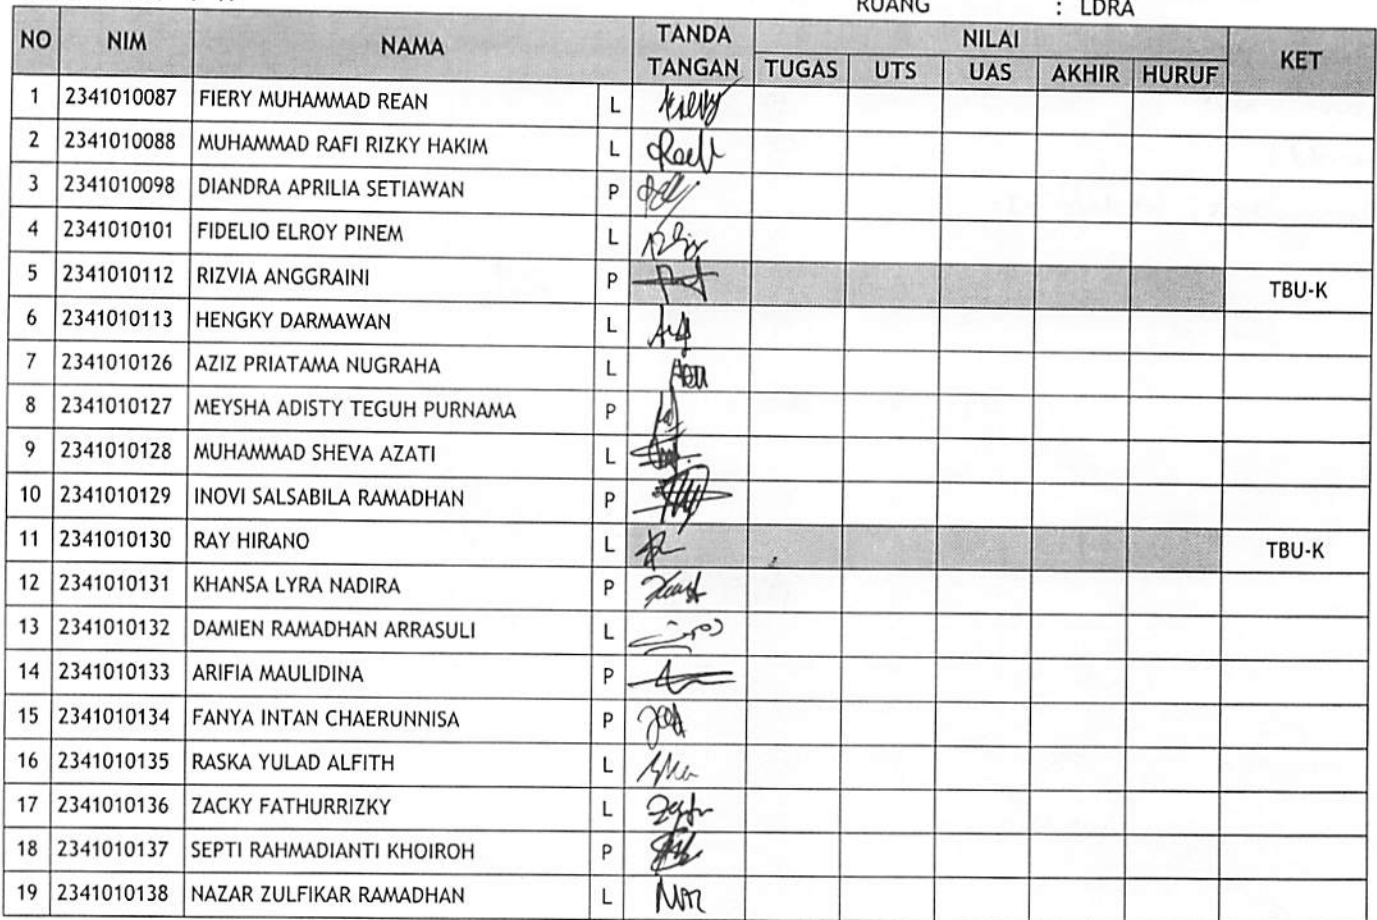 RUANG : LDRA
NO NIM NAMA TANDA TANGAN NILAI KET
TUGAS UTS UAS AKHIR HURUF
1 2341010087 FIERY MUHAMMAD REAN L
2 2341010088 MUHAMMAD RAFI RIZKY HAKIM L
3 2341010098 DIANDRA APRILIA SETIAWAN P
4 2341010101 FIDELIO ELROY PINEM L
5 2341010112 RIZVIA ANGGRAINI P TBU-K
6 2341010113 HENGKY DARMAWAN L
7 2341010126 AZIZ PRIATAMA NUGRAHA L
8 2341010127 MEYSHA ADISTY TEGUH PURNAMA P
9 2341010128 MUHAMMAD SHEVA AZATI L
10 2341010129 INOVI SALSABILA RAMADHAN P
11 2341010130 RAY HIRANO L TBU-K
12 2341010131 KHANSA LYRA NADIRA P
13 2341010132 DAMIEN RAMADHAN ARRASULI L
14 2341010133 ARIFIA MAULIDINA P
15 2341010134 FANYA INTAN CHAERUNNISA P
16 2341010135 RASKA YULAD ALFITH L
17 2341010136 ZACKY FATHURRIZKY L
18 2341010137 SEPTI RAHMADIANTI KHOIROH P
19 2341010138 NAZAR ZULFIKAR RAMADHAN L